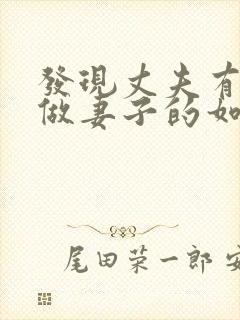 發現丈夫有
做妻子的如
尾田荣一郎